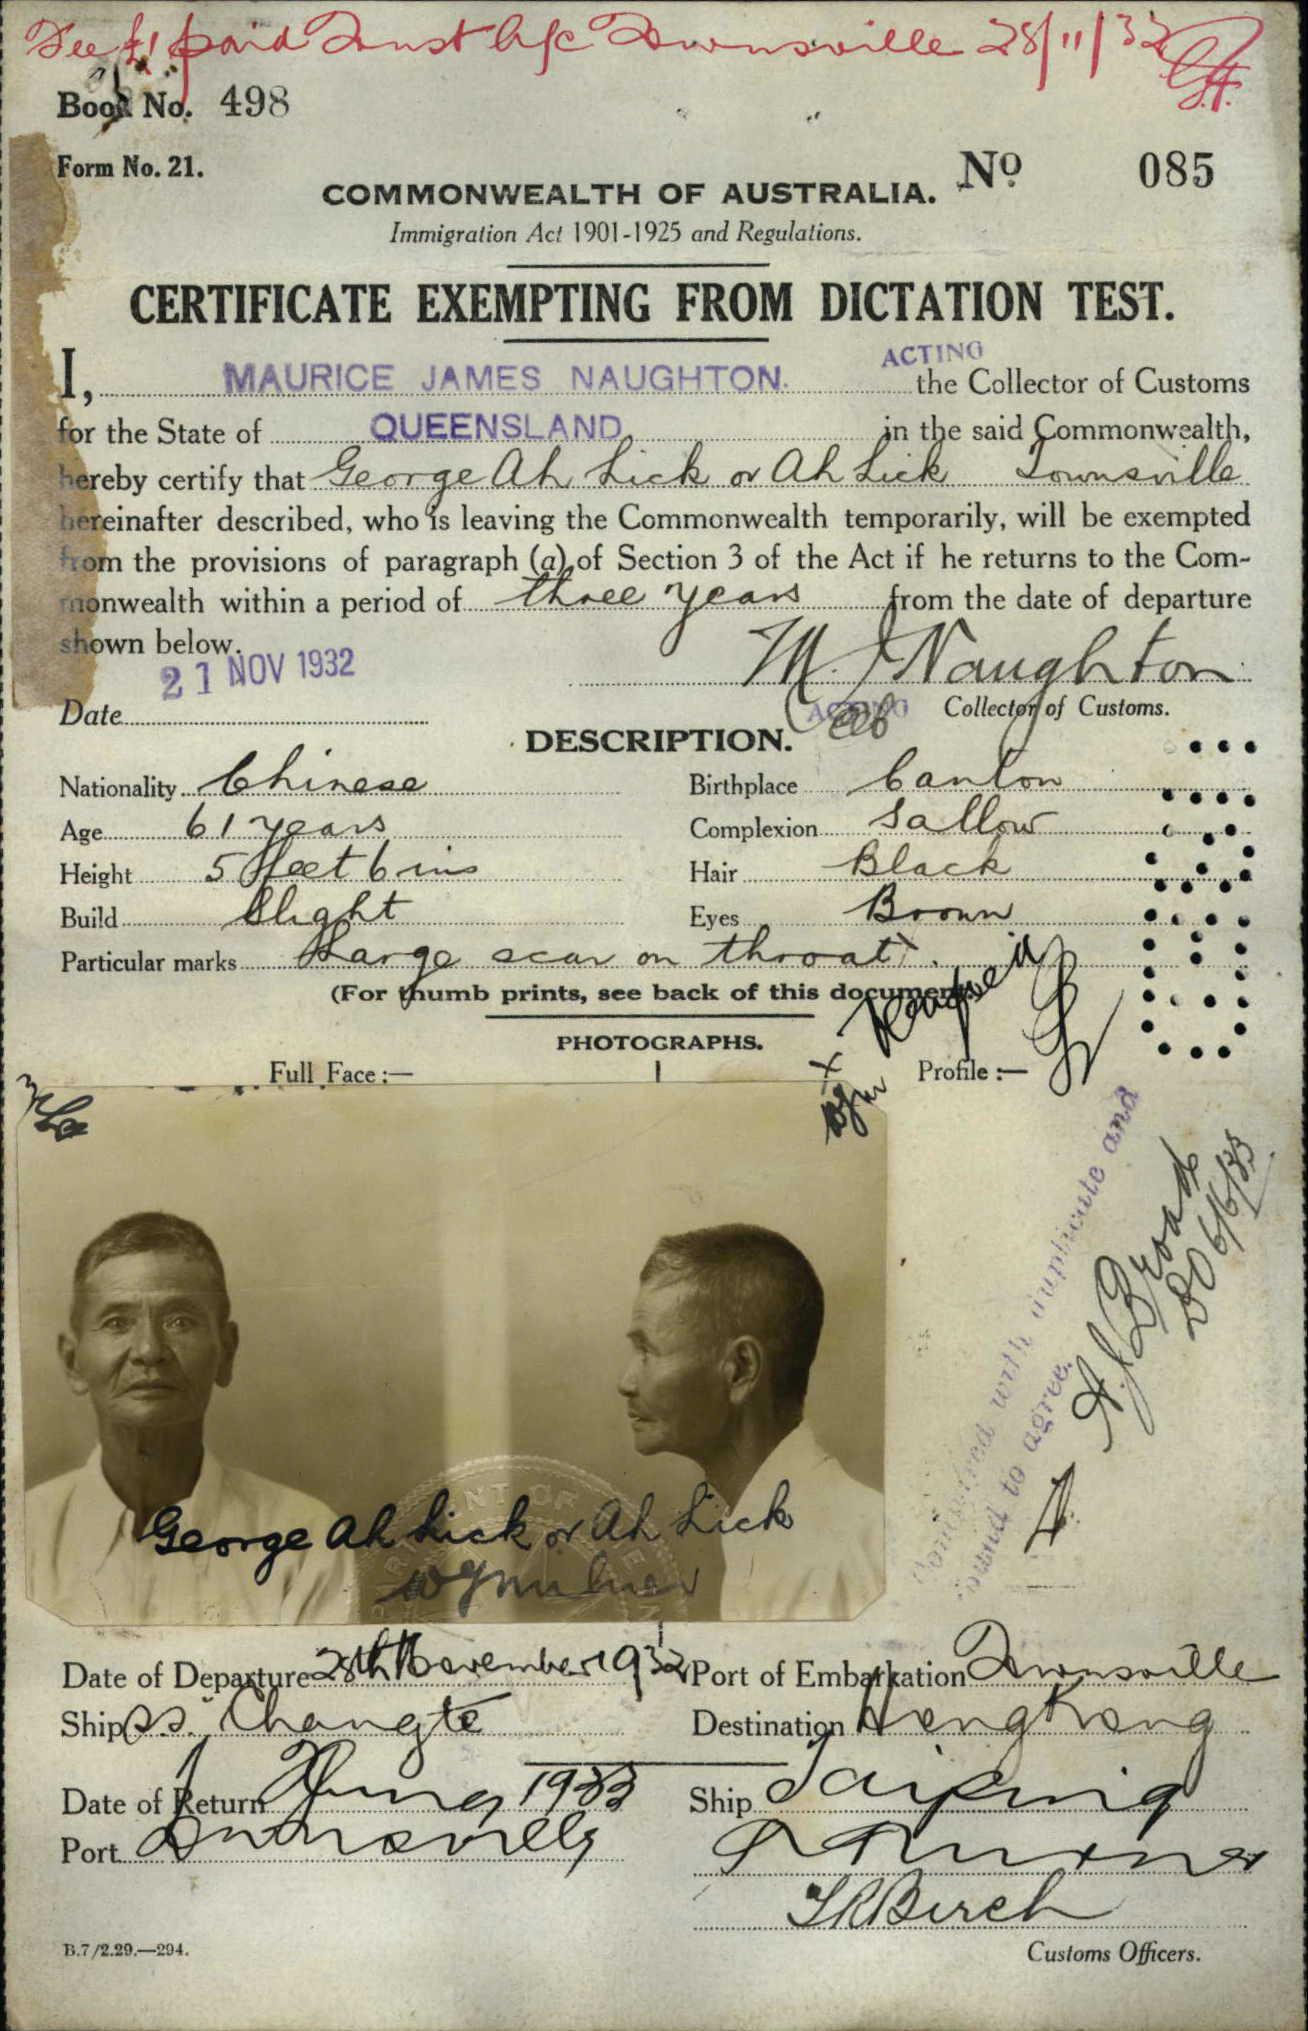 Fee £1 paid Trust A/c Townsville 28/11/32
Book No. 498
Form No. 21.
No 085
COMMONWEALTH OF AUSTRALIA.
Immigration Act 1901-1925 and Regulations.
CERTIFICATE EXEMPTING FROM DICTATION TEST.
ACTING
I, MAURICE JAMES NAUGHTON. the Collector of Customs
for the State of QUEENSLAND in the said Commonwealth,
hereby certify that George Ah Lick or Ah Lick Townsville
hereinafter described, who is leaving the Commonwealth temporarily, will be exempted
from the provisions of paragraph (a) of Section 3 of the Act if he returns to the Com-
monwealth within a period of three years from the date of departure
shown below.
21 NOV 1932
M. J Naughton
Date
ACTING Collector of Customs.
DESCRIPTION.
Nationality Chinese Birthplace Canton
Age 61 years Complexion Sallow
Height 5 feet 6 ins Hair Black
Build Slight Eyes Brown
Particular marks Large scar on throat x.
(For thumb prints, see back of this document
PHOTOGRAPHS.
Full Face :— Profile :—
duplicate and
found to agree.
A.J. Broad
6/6/33
George Ah Lick or Ah Lick
Date of Departure 28th November 1932 Port of Embarkation Townsville
Ship SS. Changte Destination Hong Kong
Date of Return June 1933 Ship Taiping
Port Townsville
Customs Officers.
B.7/2.29.—294.